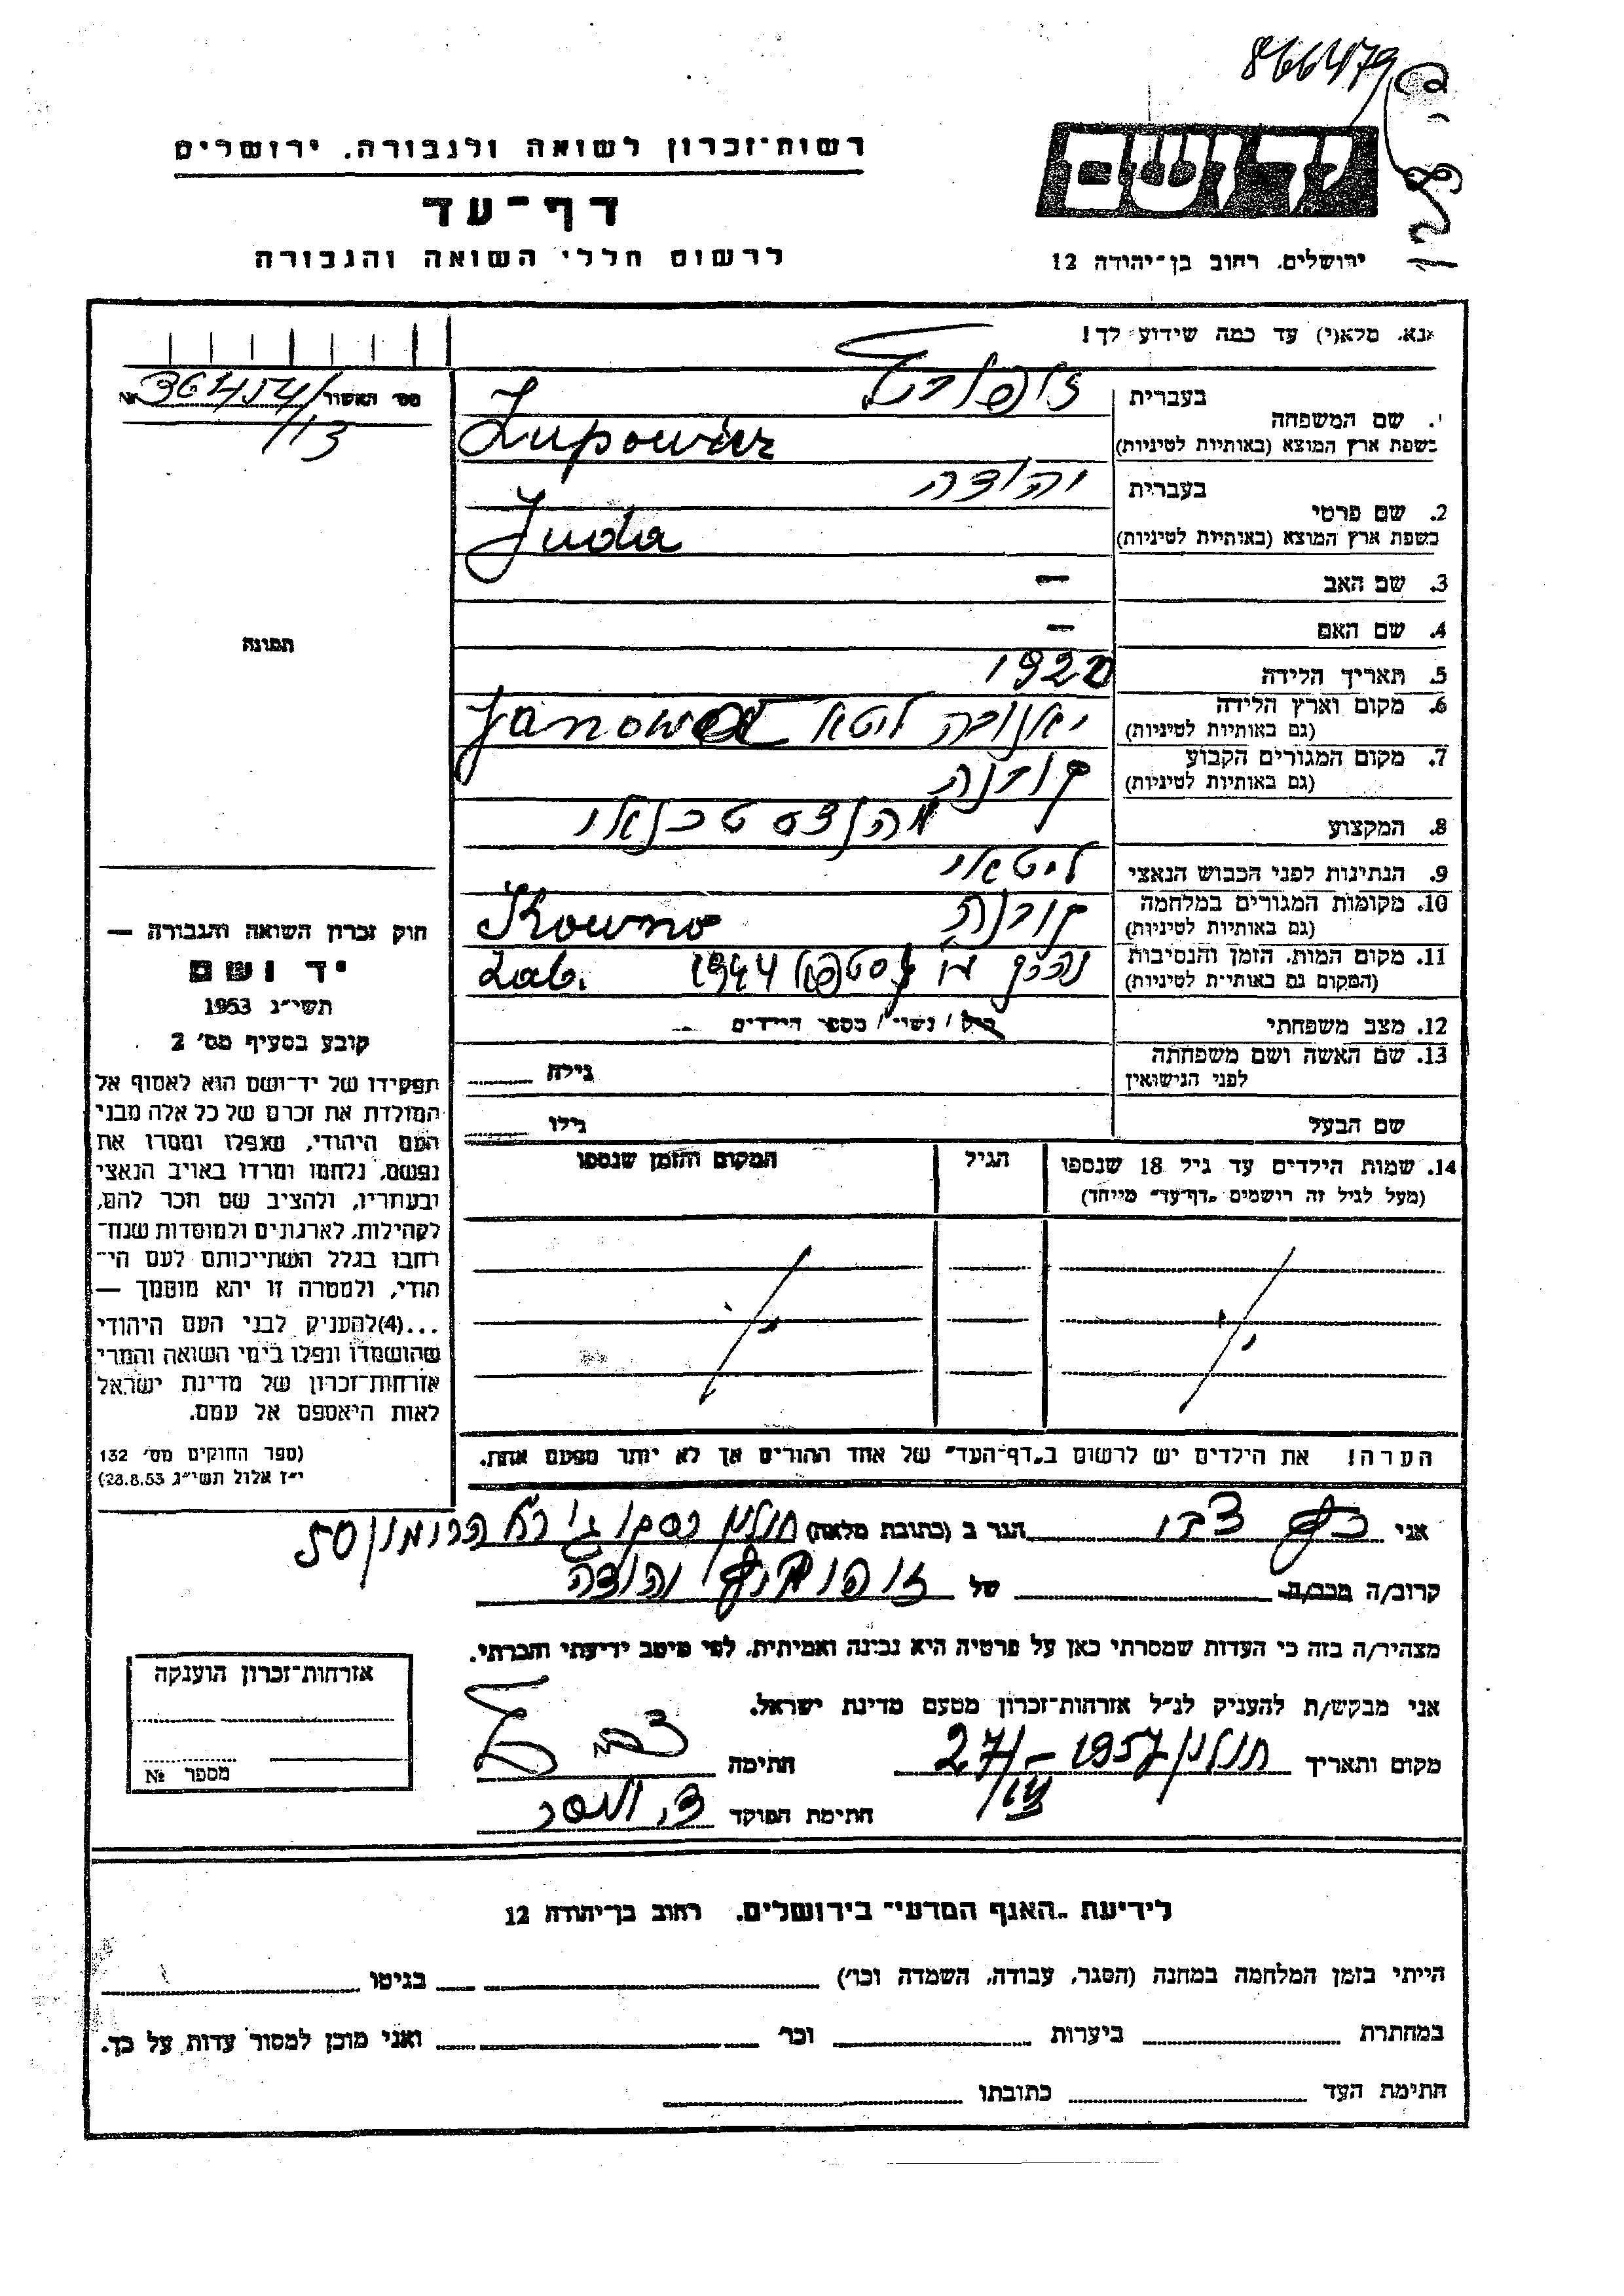 866479
רשות־זכרון לשואה ולגבורה, ירושלים
יד ושם
דף־עד
לרשום חללי השואה והגבורה
ירושלים, רחוב בן־יהודה 12
נא, מלא(י) עד כמה שידוע לך!
מס׳ האשור 36454/ №
/13
1. שם המשפחה
בעברית
בשפת ארץ המוצא (באותיות לטיניות) Zupowicz
2. שם פרטי
בעברית יהודה
בשפת ארץ המוצא (באותיות לטיניות) Juda
3. שם האב —
4. שם האם —
5. תאריך הלידה 1920
6. מקום וארץ הלידה
(גם באותיות לטיניות) יאנובה ליטא
7. מקום המגורים הקבוע
(גם באותיות לטיניות) קובנה
8. המקצוע
9. הנתינות לפני הכבוש הנאצי ליטאי
10. מקומות המגורים במלחמה
(גם באותיות לטיניות) קובנה Kowno
11. מקום המות, הזמן והנסיבות
(המקום גם באותיות לטיניות) 1944
12. מצב משפחתי רווק / נשוי / מספר הילדים
13. שם האשה ושם משפחתה
לפני הנישואין גילה
שם הבעל גילו
14. שמות הילדים עד גיל 18 שנספו
(מעל לגיל זה רושמים „דף־עד״ מיוחד)
הגיל
המקום והזמן שנספו
הערה! את הילדים יש לרשום ב„דף־העד״ של אחד ההורים אך לא יותר מפעם אחת.
תמונה
חוק זכרון השואה והגבורה —
יד ושם
תשי״ג 1953
קובע בסעיף מס׳ 2
תפקידו של יד־ושם הוא לאסוף אל
המולדת את זכרם של כל אלה מבני
העם היהודי, שנפלו ומסרו את
נפשם, נלחמו ומרדו באויב הנאצי
ובעוזריו, ולהציב שם וזכר להם,
לקהילות, לארגונים ולמוסדות שנח־
רבו בגלל השתייכותם לעם הי־
הודי, ולמטרה זו יהא מוסמך —
...(4)להעניק לבני העם היהודי
שהושמדו ונפלו בימי השואה והמרי
אזרחות־זכרון של מדינת ישראל
לאות היאספם אל עמם.
(ספר החוקים מס׳ 132
י״ז אלול תשי״ג 28.8.53)
אני כץ צבי הגר ב (כתובת מלאה) חולון
קרוב/ה מכר/ה של יהודה
מצהיר/ה בזה כי העדות שמסרתי כאן על פרטיה היא נכונה ואמיתית, לפי מיטב ידיעתי והכרתי.
אני מבקש/ת להעניק לנ״ל אזרחות־זכרון מטעם מדינת ישראל.
מקום ותאריך חולון 1957 חתימה
חתימת הפוקד
אזרחות־זכרון הוענקה
מספר №
לידיעת „האגף המדעי״ בירושלים, רחוב בן־יהודה 12
הייתי בזמן המלחמה במחנה (הסגר, עבודה, השמדה וכו׳) בגיטו
במחתרת ביערות וכו׳ ואני מוכן למסור עדות על כך.
חתימת העד כתובתו